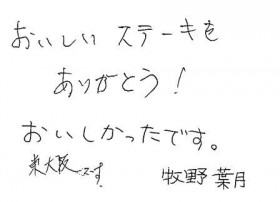 おいしい ステーキを
ありがとう!
おいしかったです。
東大阪です
牧野 葉月